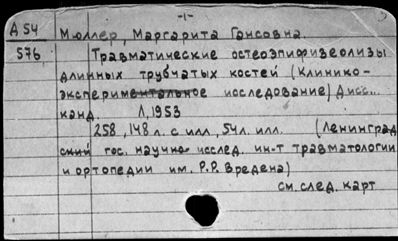 -1-
А54 Мюллер, Маргарита Гансовна.
576 Травматические остеоэпифизеолизы
длинных трубчатых костей (клинико-
экспериментальное исследование) Дисс...
канд. Л, 1953
258, 148 л. с илл, 54 л. илл. (Ленинград
ский гос. научно исслед. ин-т травматологии
и ортопедии им. Р.Р. Вредена)
см. след. карт